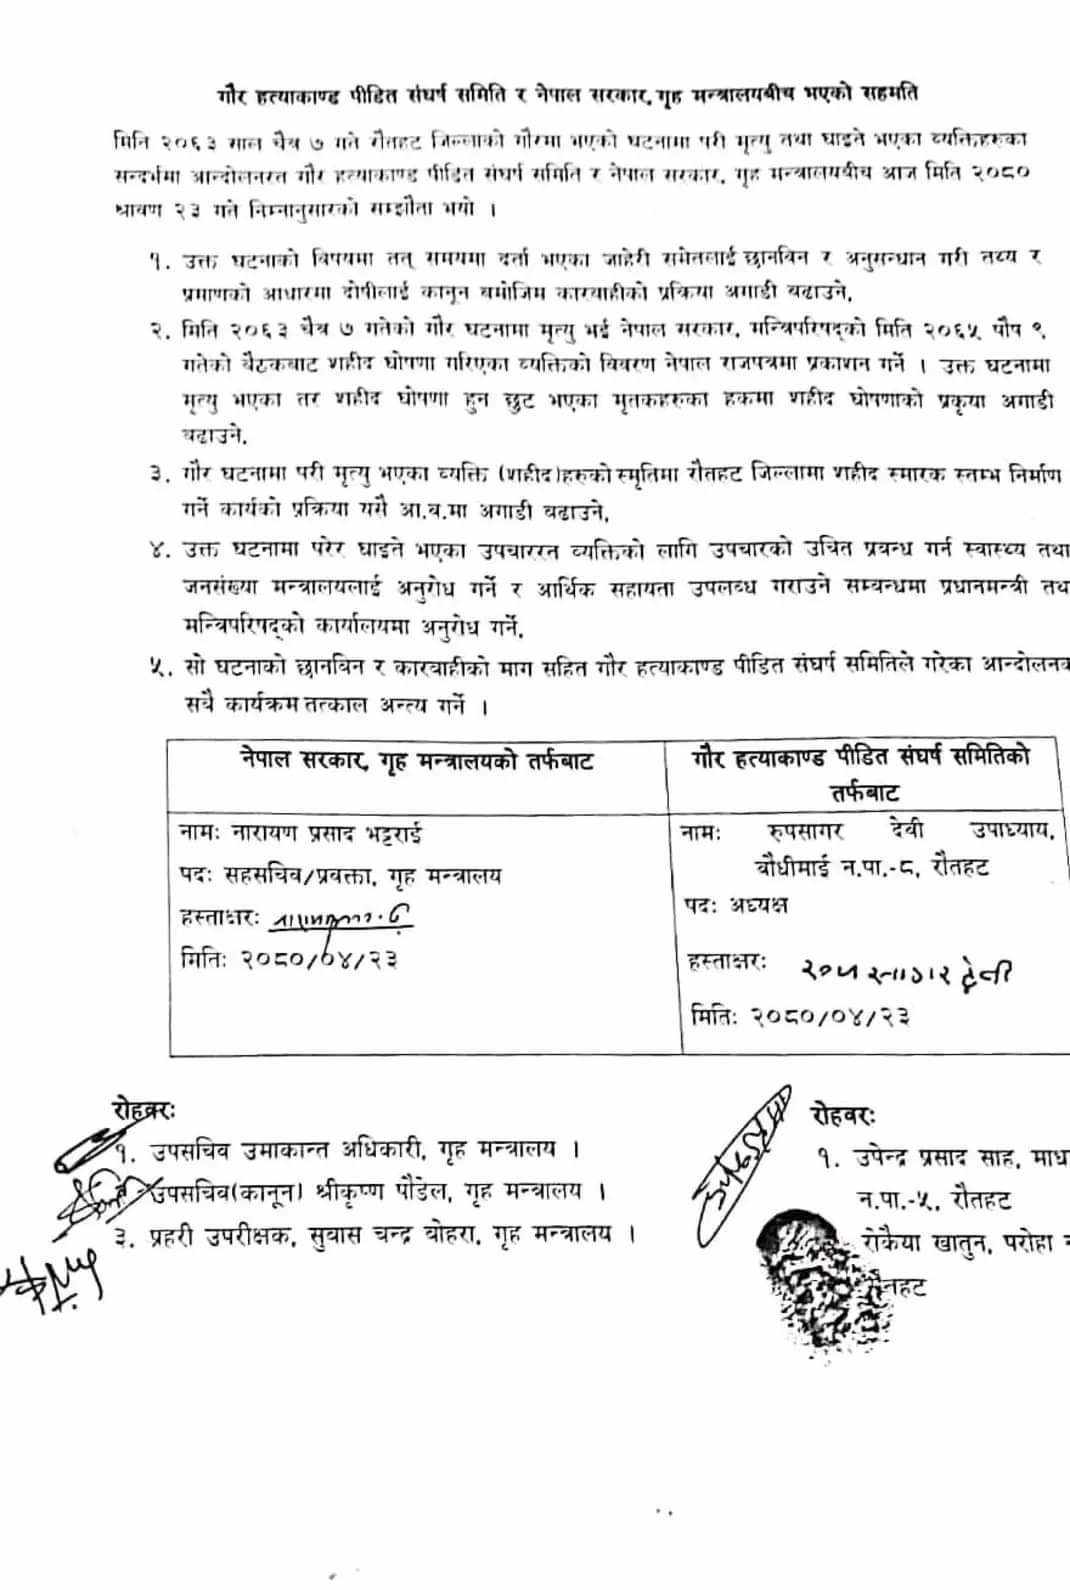 गौर हत्याकाण्ड पीडित संघर्ष समिति र नेपाल सरकार, गृह मन्त्रालयबीच भएको सहमति
मिति २०६३ साल चैत्र ७ गते रौतहट जिल्लाको गौरमा भएको घटनामा परी मृत्यु तथा घाइते भएका व्यक्तिहरुका
सन्दर्भमा आन्दोलनरत गौर हत्याकाण्ड पीडित संघर्ष समिति र नेपाल सरकार, गृह मन्त्रालयबीच आज मिति २०८०
श्रावण २३ गते निम्नानुसारको सम्झौता भयो ।
१. उक्त घटनाको विषयमा तत् समयमा दर्ता भएका जाहेरी समेतलाई छानविन र अनुसन्धान गरी तथ्य र
प्रमाणको आधारमा दोषीलाई कानून बमोजिम कारवाहीको प्रक्रिया अगाडी बढाउने,
२. मिति २०६३ चैत्र ७ गतेको गौर घटनामा मृत्यु भई नेपाल सरकार, मन्त्रिपरिषद्को मिति २०६५ पौष ९
गतेको बैठकबाट शहीद घोषणा गरिएका व्यक्तिको विवरण नेपाल राजपत्रमा प्रकाशन गर्ने । उक्त घटनामा
मृत्यु भएका तर शहीद घोषणा हुन छुट भएका मृतकहरुका हकमा शहीद घोषणाको प्रकृया अगाडी
बढाउने,
३. गौर घटनामा परी मृत्यु भएका व्यक्ति (शहीद)हरुको स्मृतिमा रौतहट जिल्लामा शहीद स्मारक स्तम्भ निर्माण
गर्ने कार्यको प्रक्रिया यसै आ.व.मा अगाडी बढाउने,
४. उक्त घटनामा परेर घाइते भएका उपचाररत व्यक्तिको लागि उपचारको उचित प्रवन्ध गर्न स्वास्थ्य तथा
जनसंख्या मन्त्रालयलाई अनुरोध गर्ने र आर्थिक सहायता उपलब्ध गराउने सम्बन्धमा प्रधानमन्त्री तथ
मन्त्रिपरिषद्को कार्यालयमा अनुरोध गर्ने,
५. सो घटनाको छानविन र कारवाहीको माग सहित गौर हत्याकाण्ड पीडित संघर्ष समितिले गरेका आन्दोलनक
सवै कार्यक्रम तत्काल अन्त्य गर्ने ।
नेपाल सरकार, गृह मन्त्रालयको तर्फबाट
नामः नारायण प्रसाद भट्टराई
पदः सहसचिव/प्रवक्ता, गृह मन्त्रालय
हस्ताक्षरः
मितिः २०८०/०४/२३
गौर हत्याकाण्ड पीडित संघर्ष समितिको
तर्फबाट
नामः रुपसागर देवी उपाध्याय,
बौधीमाई न.पा.-८, रौतहट
पदः अध्यक्ष
हस्ताक्षरः रुप सागर देवी
मितिः २०८०/०४/२३
रोहवरः
१. उपसचिव उमाकान्त अधिकारी, गृह मन्त्रालय ।
उपसचिव(कानून) श्रीकृष्ण पौडेल, गृह मन्त्रालय ।
३. प्रहरी उपरीक्षक, सुवास चन्द्र वोहरा, गृह मन्त्रालय ।
रोहवरः
१. उपेन्द्र प्रसाद साह, माध
न.पा.-५, रौतहट
रोकैया खातुन, परोहा
रौतहट